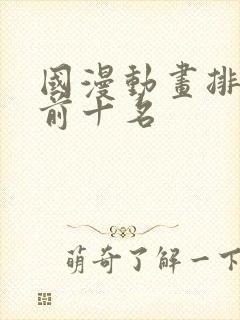 國漫動畫排
前十名
萌奇了解一下